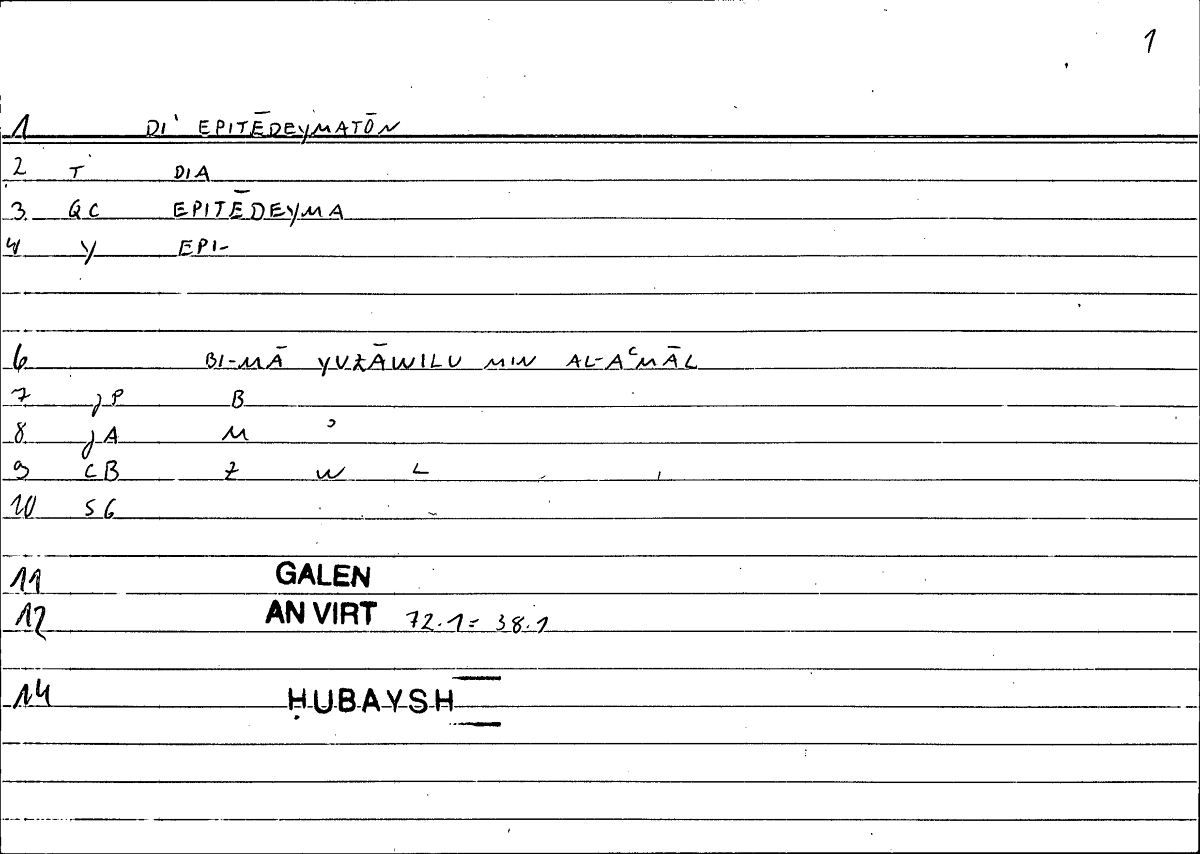 1
1 DI' EPITĒDEYMATŌN
2 T DIA
3 QC EPITĒDEYMA
4 Y EPI-
6 BI-MĀ YUZĀWILU MIN AL-AʿMĀL
7 JP B
8 JA M ʾ
9 CB Z W L
10 SG
11 GALEN
12 AN VIRT 72.1 = 38.1
14 ḤUBAYSH